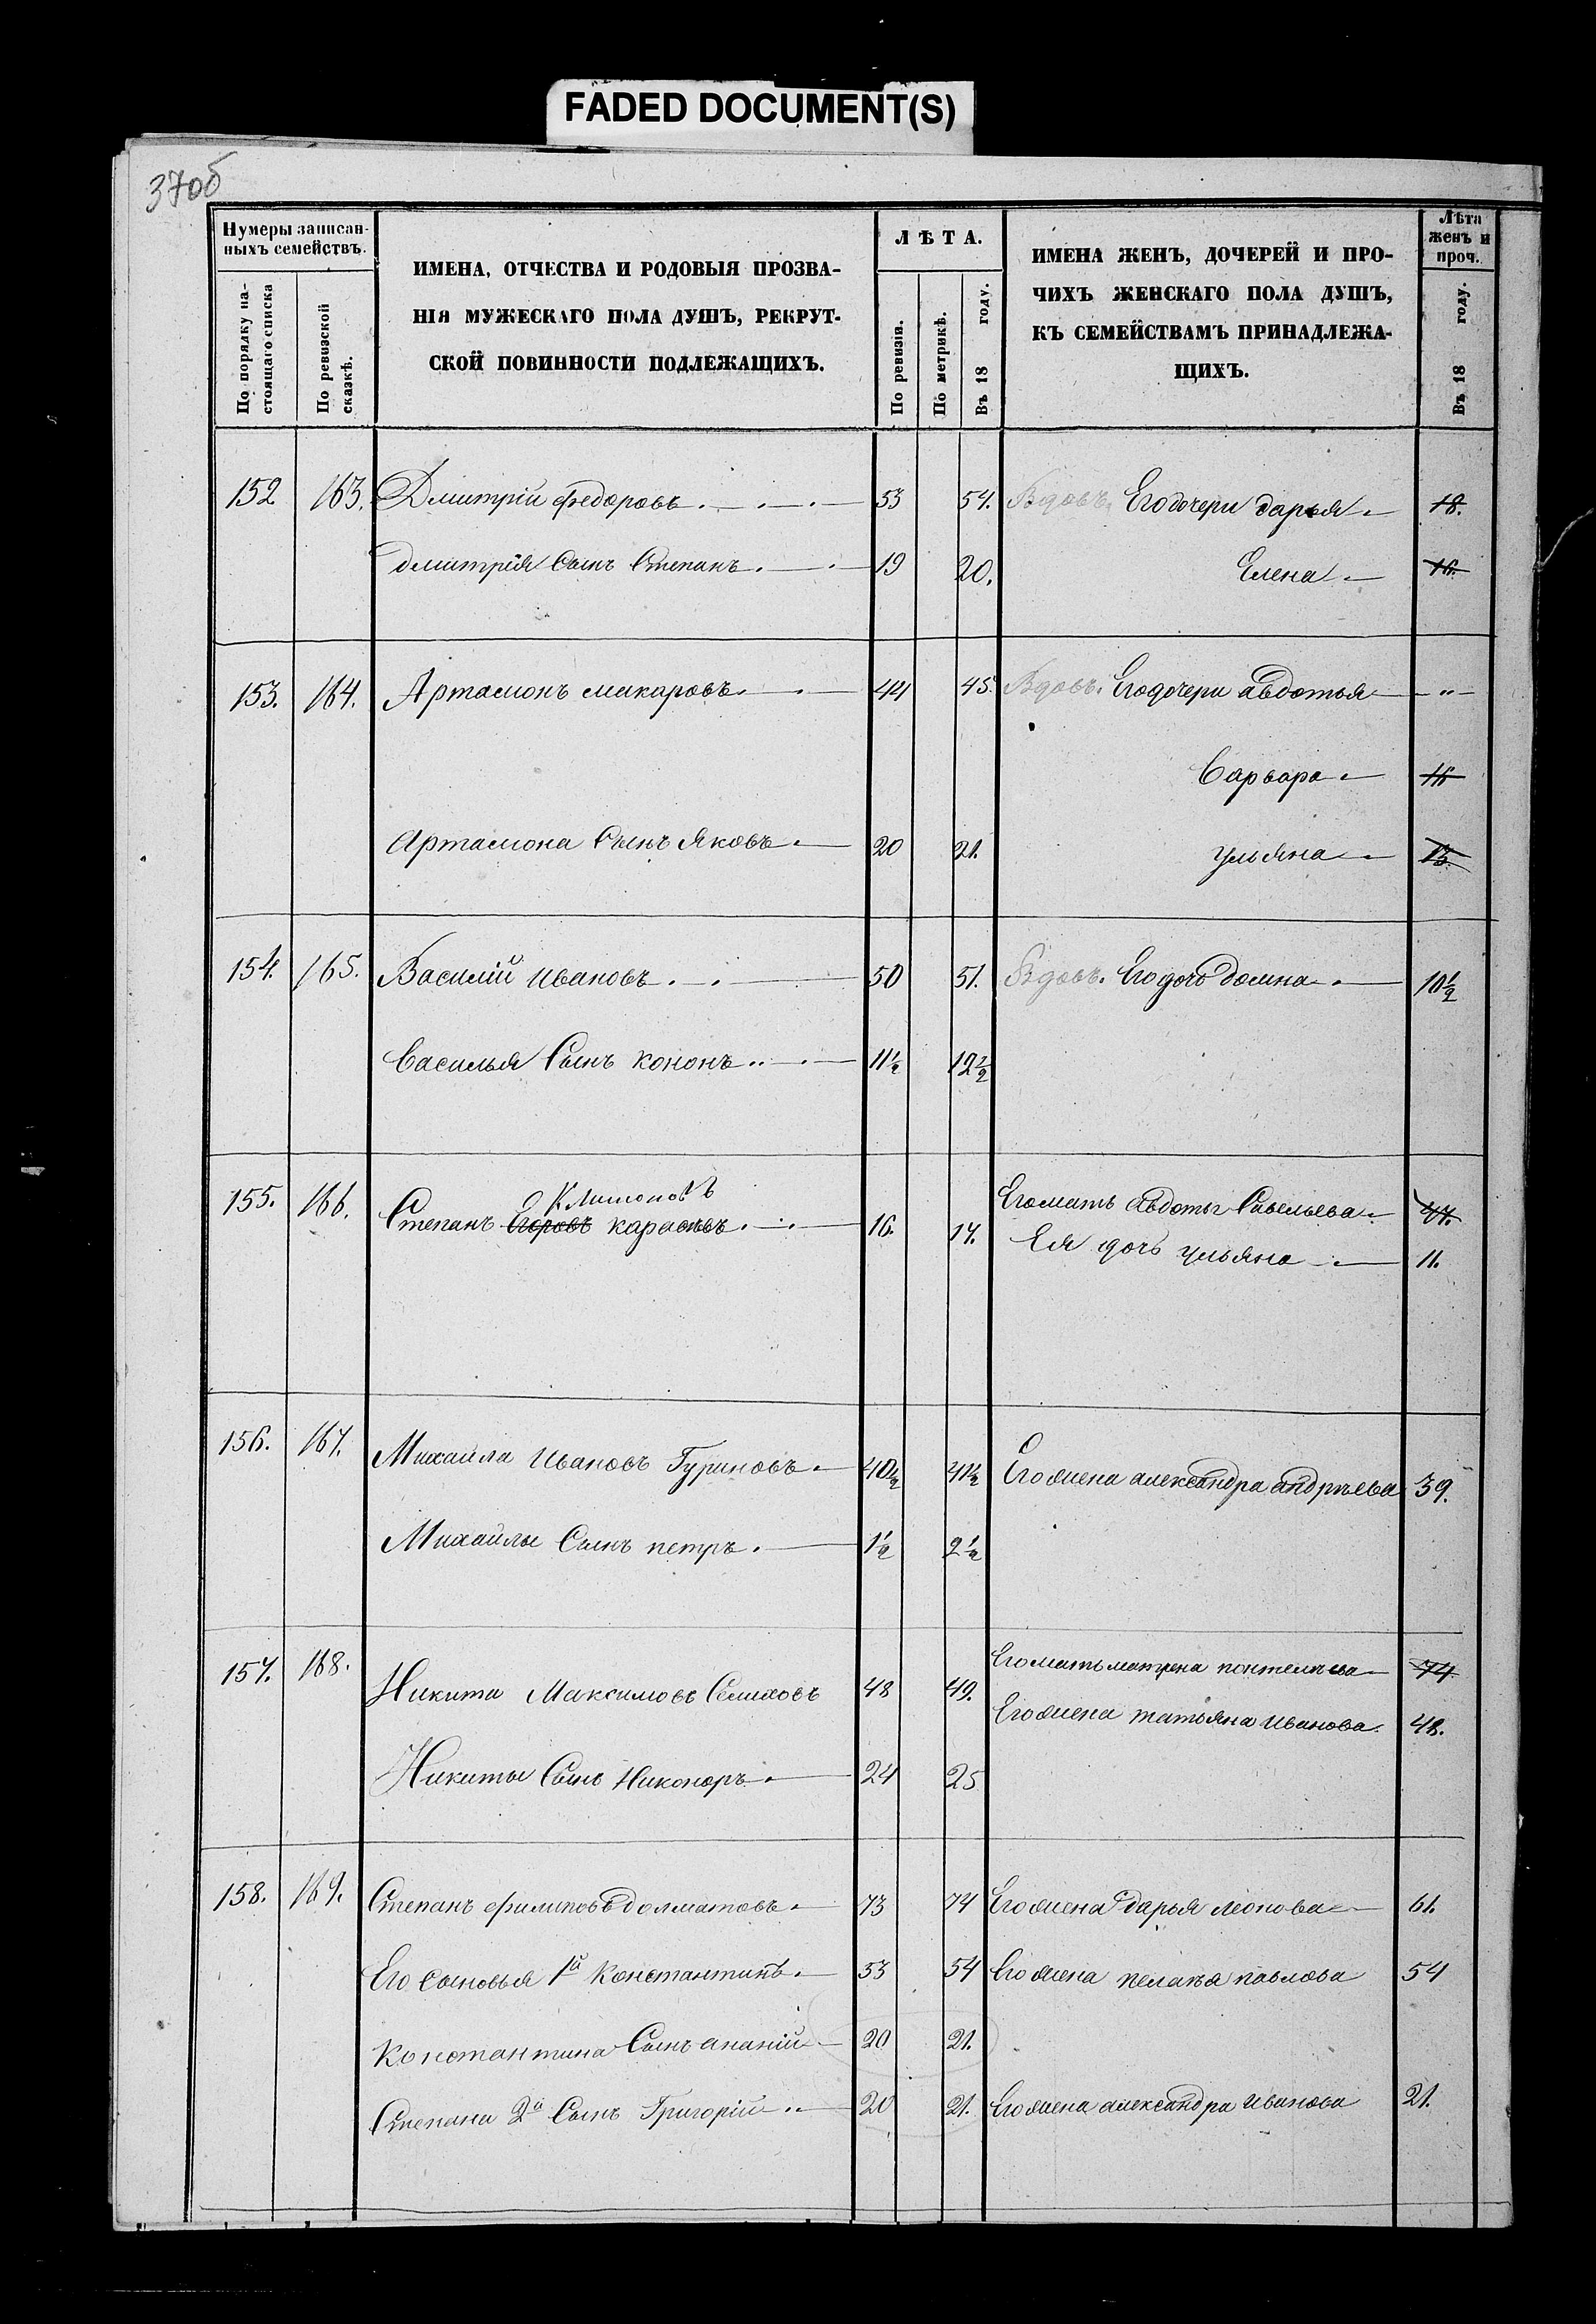 FADED DOCUMENT(S)
37об
Нумеры записан-
ныхъ семействъ.
По порядку на-
стоящаго списка
По ревизской
сказкѣ.
ИМЕНА, ОТЧЕСТВА И РОДОВЫЯ ПРОЗВА-
НІЯ МУЖЕСКАГО ПОЛА ДУШЪ, РЕКРУТ-
СКОЙ ПОВИННОСТИ ПОДЛЕЖАЩИХЪ.
ЛѢТА.
По ревизіи.
По метрикѣ.
Въ 18 году.
ИМЕНА ЖЕНЪ, ДОЧЕРЕЙ И ПРО-
ЧИХЪ ЖЕНСКАГО ПОЛА ДУШЪ,
КЪ СЕМЕЙСТВАМЪ ПРИНАДЛЕЖА-
ЩИХЪ.
Лѣта
женъ и
проч.
Въ 18 году.
152 163. Дмитрій федоровъ 53 54. Вдовъ. Его дочери дарья 18.
дмитрія Сынъ Степанъ 19 20. Елена 16.
153. 164. Артамонъ макаровъ 44 45. Вдовъ. Его дочери авдотья "
Варвара 16
Артамона Сынъ Яковъ 20 21. ульяна 13.
154. 165. Василій Ивановъ 50 51. Вдовъ. Его дочь домна 10½
Василья Сынъ кононъ 11½ 12½
155. 166. Климоновъ
Степанъ Егоровъ 16. 17. Его мать авдотья Савельева 47.
Ея дочь ульяна 11.
156. 167. Михаила Ивановъ Гуриновъ 40½ 41½ Его жена александра андрѣева 39.
Михайлы Сынъ петръ 1½ 2½
157. 168. Его мать матрена 74.
Никита Максимовъ Селиховъ 48 49. Его жена татьяна Иванова 48.
Никиты Сынъ Никоноръ 24 25
158. 169. Степанъ филиповъ долматовъ 73 74 Его жена дарья леонова 61.
Его сыновья 1й Константинъ 53 54 Его жена пелагѣя павлова 54
Константина Сынъ ананій 20 21.
Степана 2й Сынъ Григорій 20 21. Его жена александра Иванова 21.